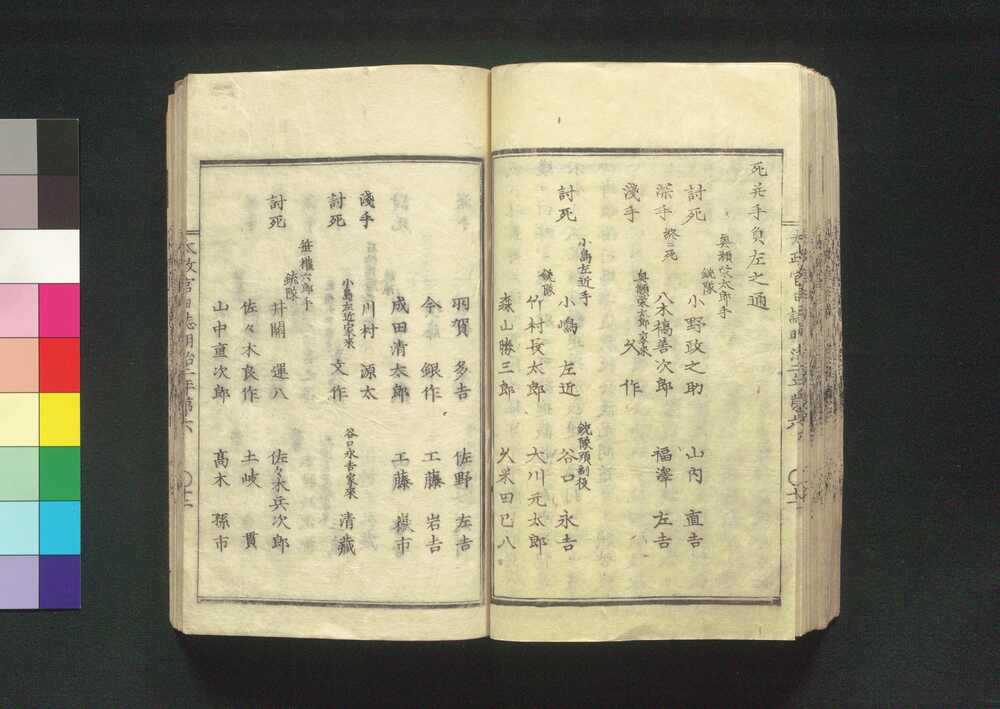 死并手負左之通
奥瀬
太郎手
銃隊
討死　小野政之助　山内　直吉
深手　終ニ死　八木橋善次郎　福澤　左吉
家來
淺手　久作
小嶋左近手
銃隊頭副役
討死　小嶋　左近　谷口　永吉
銃隊
竹村長太郎　大川元太郎
森山勝三郎　久米田巳八
羽賀　多吉　佐野　左吉
今　銀作　工藤　岩吉
成田清太郎　工藤　嶽市
淺手　川村　源太
小嶋左近家來　谷口永吉家來
討死　文作　清藏
笹權六郎手
銃隊
討死　井關　運八　佐々木兵次郎
佐々木良作　土岐　貫
山中直次郎　高木　孫市
太政官日誌明治二年第六　〇十二